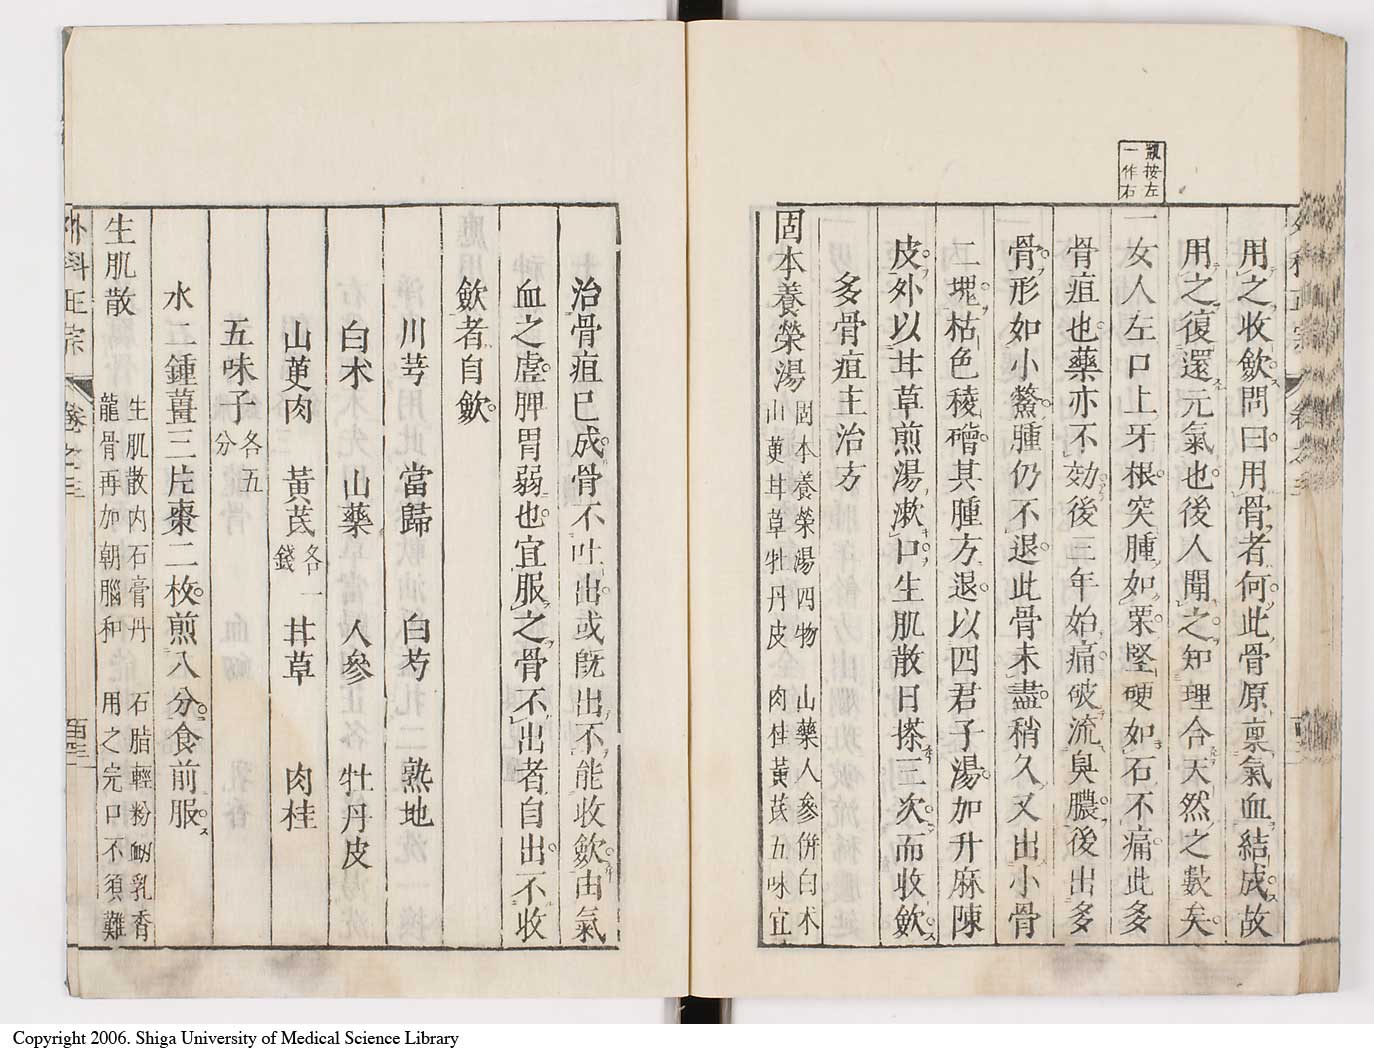 凱按左
一作右
用之收歛問曰用骨者何此骨原稟氣血結成故
用之復還元氣也後人聞之知理合天然之數矣
一女人左口上牙根突腫如栗堅硬如石不痛此多
骨疽也藥亦不効後三年始痛破流臭膿後出多
骨形如小鱉腫仍不退此骨未盡稍久又出小骨
二塊枯色稜磳其腫方退以四君子湯加升麻陳
皮外以甘草煎湯漱口生肌散日搽三次而收歛
多骨疽主治方
固本養榮湯 固本養榮湯四物 山藥人參併白术
山萸甘草牡丹皮 肉桂黃芪五味宜
治骨疽已成骨不吐出或既出不能收歛由氣
血之虛脾胃弱也宜服之骨不出者自出不收
歛者自歛
川芎 當歸 白芍 熟地
白术 山藥 人參 牡丹皮
山萸肉 黃芪各一錢 甘草 肉桂
五味子各五分
水二鍾薑三片棗二枚煎八分食前服
生肌散 生肌散內石膏丹 石脂輕粉衂乳香
龍骨再加朝腦和 用之完口不須難
外科正宗 卷之三
Copyright 2006. Shiga University of Medical Science Library